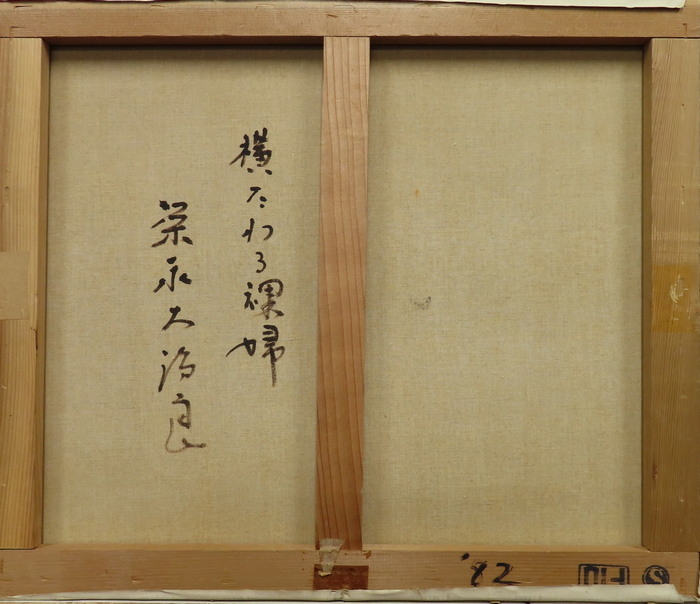 横たわる裸婦
栄永大治良
'82
F10
S